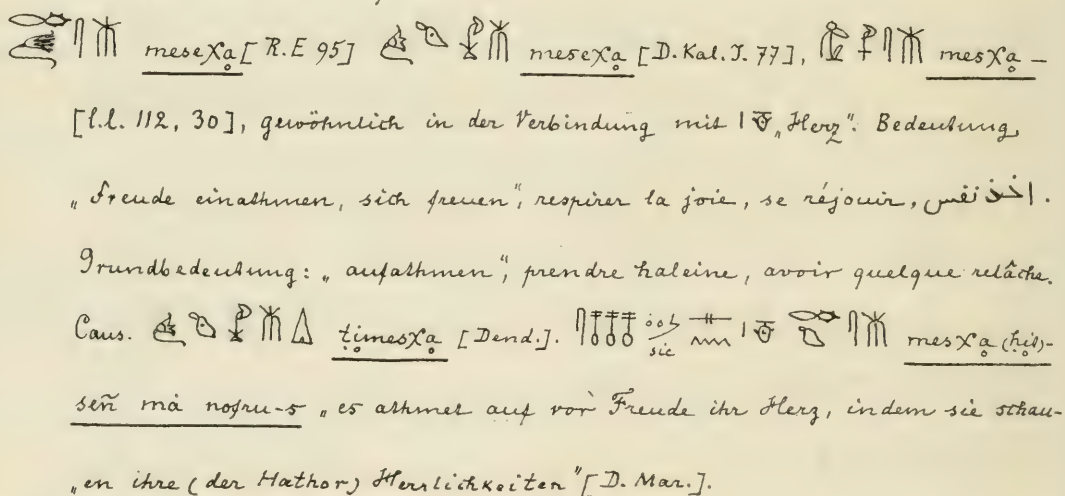 meseχa [R.E 95] meseχa [D. Kal. I. 77], mesχa –
[l.l. 112, 30], gewöhnlich in der Verbindung mit „Herz“. Bedeutung,
„Freude einathmen, sich freuen“, respirer la joie, se réjouir, اخذ نفس.
Grundbedeutung: „aufathmen“, prendre haleine, avoir quelque relâche.
Caus. ṭimesχa [Dend.]. sic mesχa (hit)-
señ mà nofru-s „es athmet auf vor Freude ihr Herz, indem sie schau-
„en ihre (der Hathor) Herrlichkeiten“ [D. Mar.].